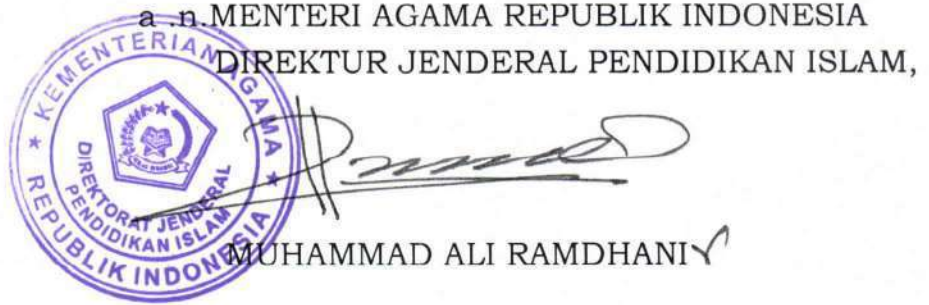 a .n.MENTERI AGAMA REPUBLIK INDONESIA
DIREKTUR JENDERAL PENDIDIKAN ISLAM,
KEMENTERIAN AGAMA
REPUBLIK INDONESIA
DIREKTORAT JENDERAL
PENDIDIKAN ISLAM
MUHAMMAD ALI RAMDHANI